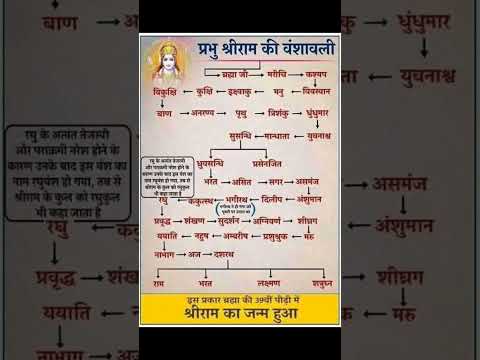 प्रभु श्रीराम की वंशावली
ब्रह्मा जी → मरीचि → कश्यप
विकुक्षि ← कुक्षि ← इक्ष्वाकु ← मनु ← विवस्वान
बाण → अनरण्य → पृथु → त्रिशंकु → धुंधुमार
सुसन्धि ← मान्धाता ← युवनाश्व
ध्रुवसन्धि प्रसेनजित
भरत → असित → सगर → असमंज
रघु के अत्यंत तेजस्वी
और पराक्रमी नरेश होने के
कारण उनके बाद इस वंश का
नाम रघुवंश हो गया, तब से
श्रीराम के कुल को रघुकुल
भी कहा जाता है
रघु ← ककुत्स्थ ← भगीरथ ← दिलीप ← अंशुमान
प्रवृद्ध → शंखण → सुदर्शन → अग्निवर्ण → शीघ्रग
ययाति ← नहुष ← अम्बरीष ← प्रशुश्रुक ← मरु
नाभाग → अज → दशरथ
राम भरत लक्ष्मण शत्रुघ्न
इस प्रकार ब्रह्मा की 39वीं पीढ़ी में
श्रीराम का जन्म हुआ
बाण
धुंधुमार
युवनाश्व
रघु के अत्यंत तेजस्वी
और पराक्रमी नरेश होने के
कारण उनके बाद इस वंश का
नाम रघुवंश हो गया, तब से
श्रीराम के कुल को रघुकुल
भी कहा जाता है
असमंज
रघु
अंशुमान
प्रवृद्ध → शंख
शीघ्रग
ययाति
मरु
नाभाग → अज